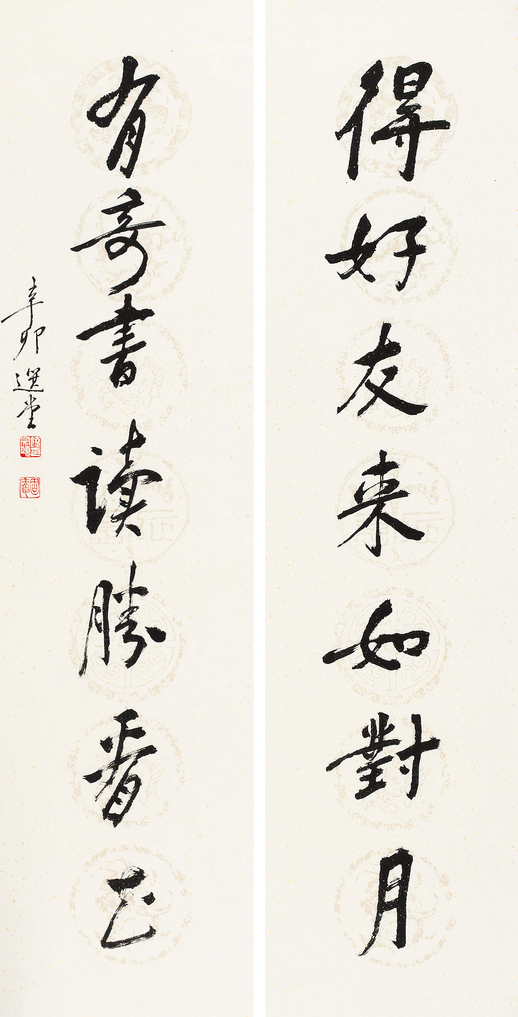 得好友来如對月
有奇書读勝看花
辛卯選堂